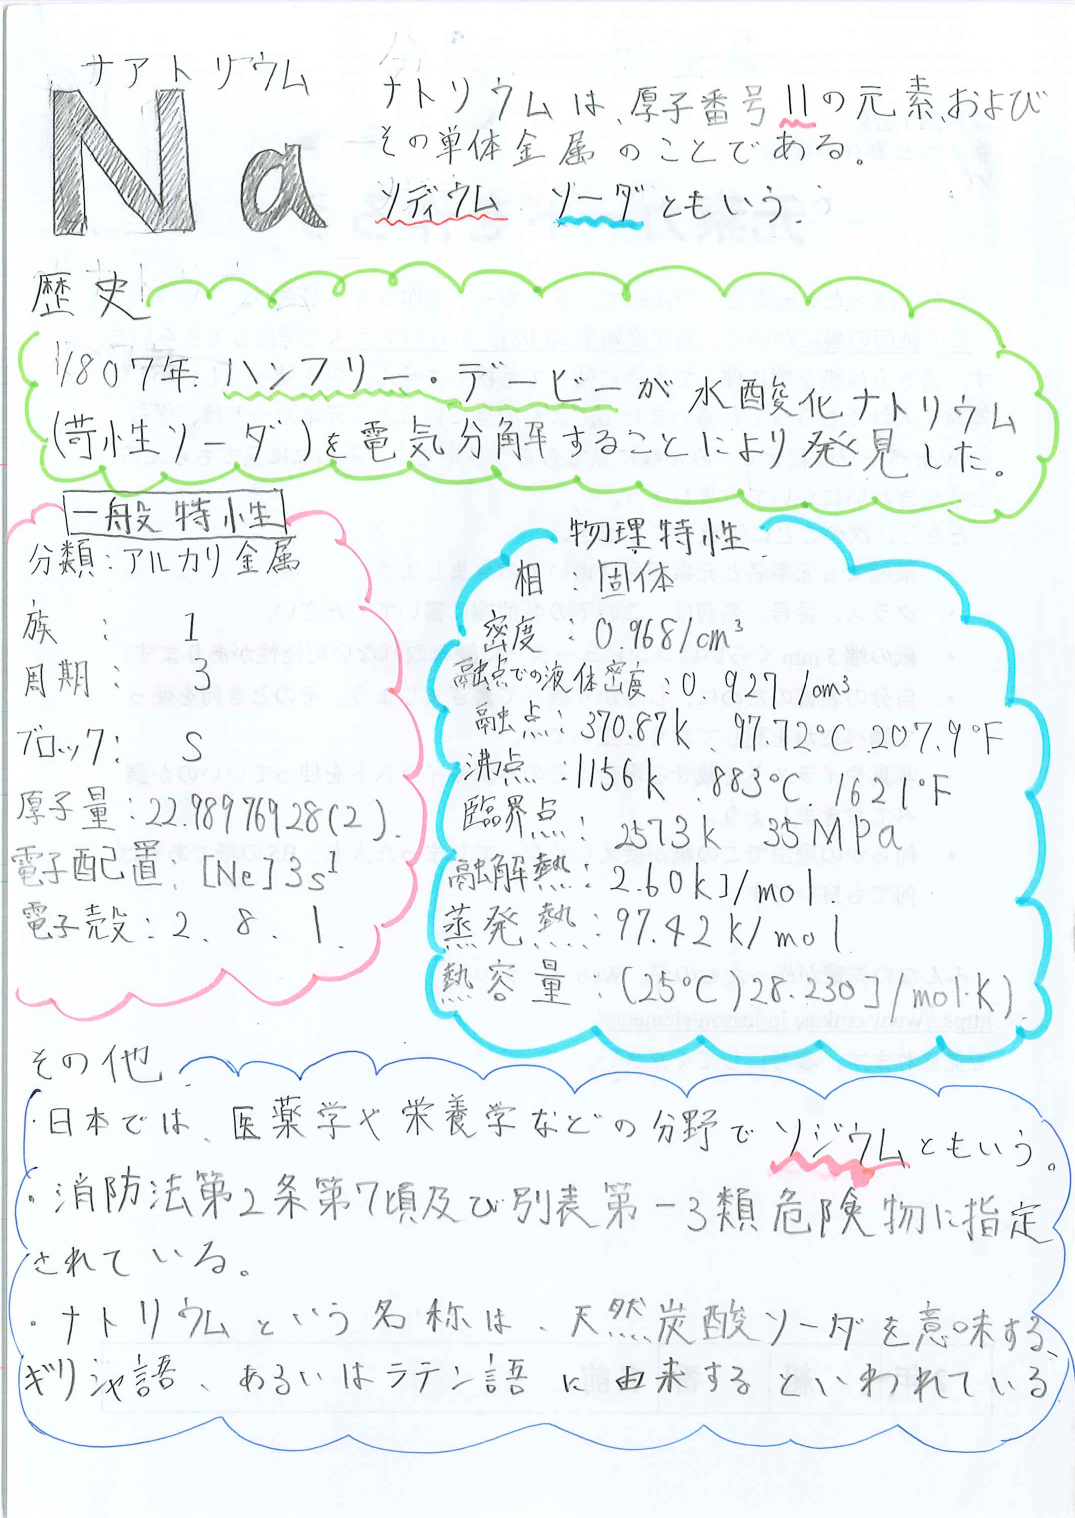 ナアトリウム
Na
ナトリウムは、原子番号11の元素、および
その単体金属のことである。
ソディウム ソーダともいう。
歴史
1807年、ハンフリー・デービーが水酸化ナトリウム
(苛性ソーダ)を電気分解することにより発見した。
一般特性
分類：アルカリ金属
族：1
周期：3
ブロック：S
原子量：22.98976928(2).
電子配置、[Ne]3s1
電子殻：2、8、1、
物理特性
相：固体
密度：0.968/cm³
融点での液体密度：0.927/cm³
融点：370.87k、97.72℃.207.9°F
沸点：1156k.883℃.1621°F
臨界点：2573k 35MPa
融解熱：2.60kJ/mol.
蒸発熱：97.42k/mol
熱容量：(25℃)28.230J/mol・K).
その他
・日本では、医薬学や栄養学などの分野でソジウムともいう。
・消防法第2条第7項及び別表第一3類危険物に指定
されている。
・ナトリウムという名称は、天然炭酸ソーダを意味する、
ギリシャ語、あるいはラテン語に由来するといわれている